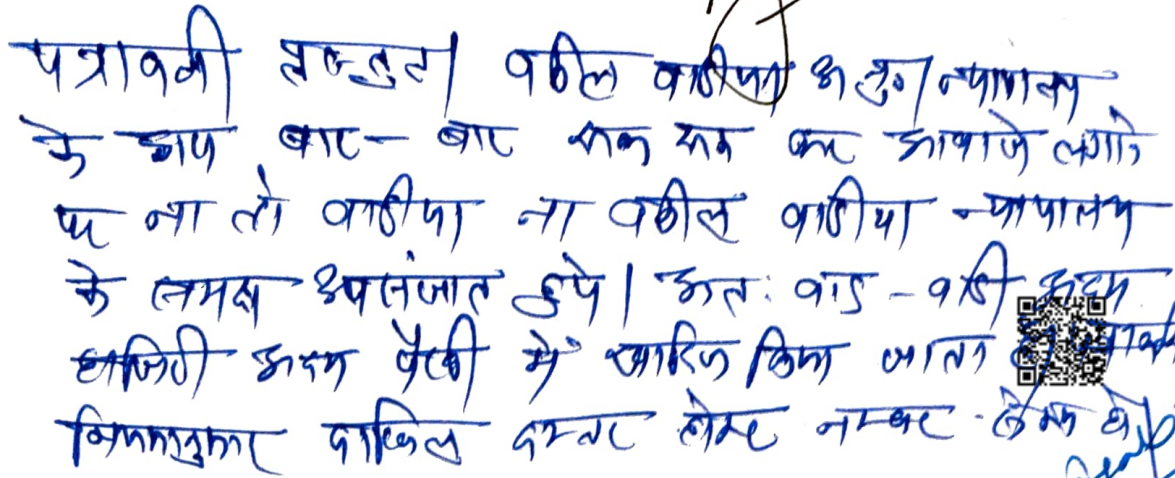 पत्रावली प्रस्तुत। वकील वादीया अनु। न्यायालय
के द्वारा बार-बार रूक रूक कर आवाजे लगाने
पर ना तो वादीया ना वकील वादीया न्यायालय
के समक्ष उपसंजात हुये। अतः वाद-वादी अदम
हाजिरी अदम पैरवी में खारिज किया जाता है
नियमानुसार दाखिल दफ्तर होकर नम्बर से कम हो